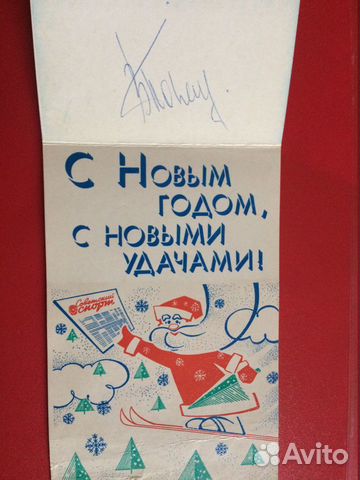 С Новым
годом,
с новыми
удачами!
Советский
спорт
Avito